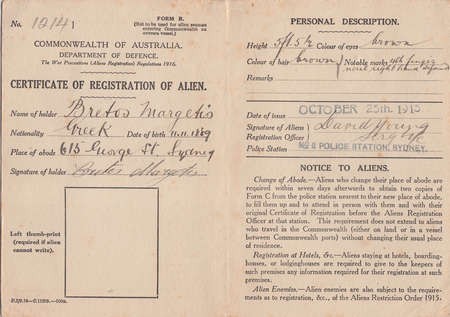 No. 1214
FORM R.
(Not to be used for alien seamen
entering Commonwealth on
oversea vessel.)
COMMONWEALTH OF AUSTRALIA.
DEPARTMENT OF DEFENCE.
The War Precautions (Alien Registration) Regulations 1916.
CERTIFICATE OF REGISTRATION OF ALIEN.
Name of holder Bretos Margetis
Nationality Greek Date of birth 11.11.1889
Place of abode 615 George St. Sydney
Signature of holder
Left thumb-print
(required if alien
cannot write).
PERSONAL DESCRIPTION.
Height 5ft 5½ Colour of eyes brown
Colour of hair brown Notable marks 4th finger
right hand
Remarks
Date of issue OCTOBER 25th. 1916
Signature of Aliens Registration Officer David Young
Sergt
Police Station No 2 POLICE STATION, SYDNEY.
NOTICE TO ALIENS.
Change of Abode.—Aliens who change their place of abode are
required within seven days afterwards to obtain two copies of
Form C from the police station nearest to their new place of abode,
to fill them up and to attend in person with them and with their
original Certificate of Registration before the Aliens Registration
Officer at that station. This requirement does not extend to aliens
who travel in the Commonwealth (either on land or in a vessel
between Commonwealth ports) without changing their usual place
of residence.
Registration at Hotels, &c.—Aliens staying at hotels, boarding-
houses, or lodginghouses are required to give to the keepers of
such premises any information required for their registration at such
premises.
Alien Enemies.—Alien enemies are also subject to the require-
ments as to registration, &c., of the Aliens Restriction Order 1915.